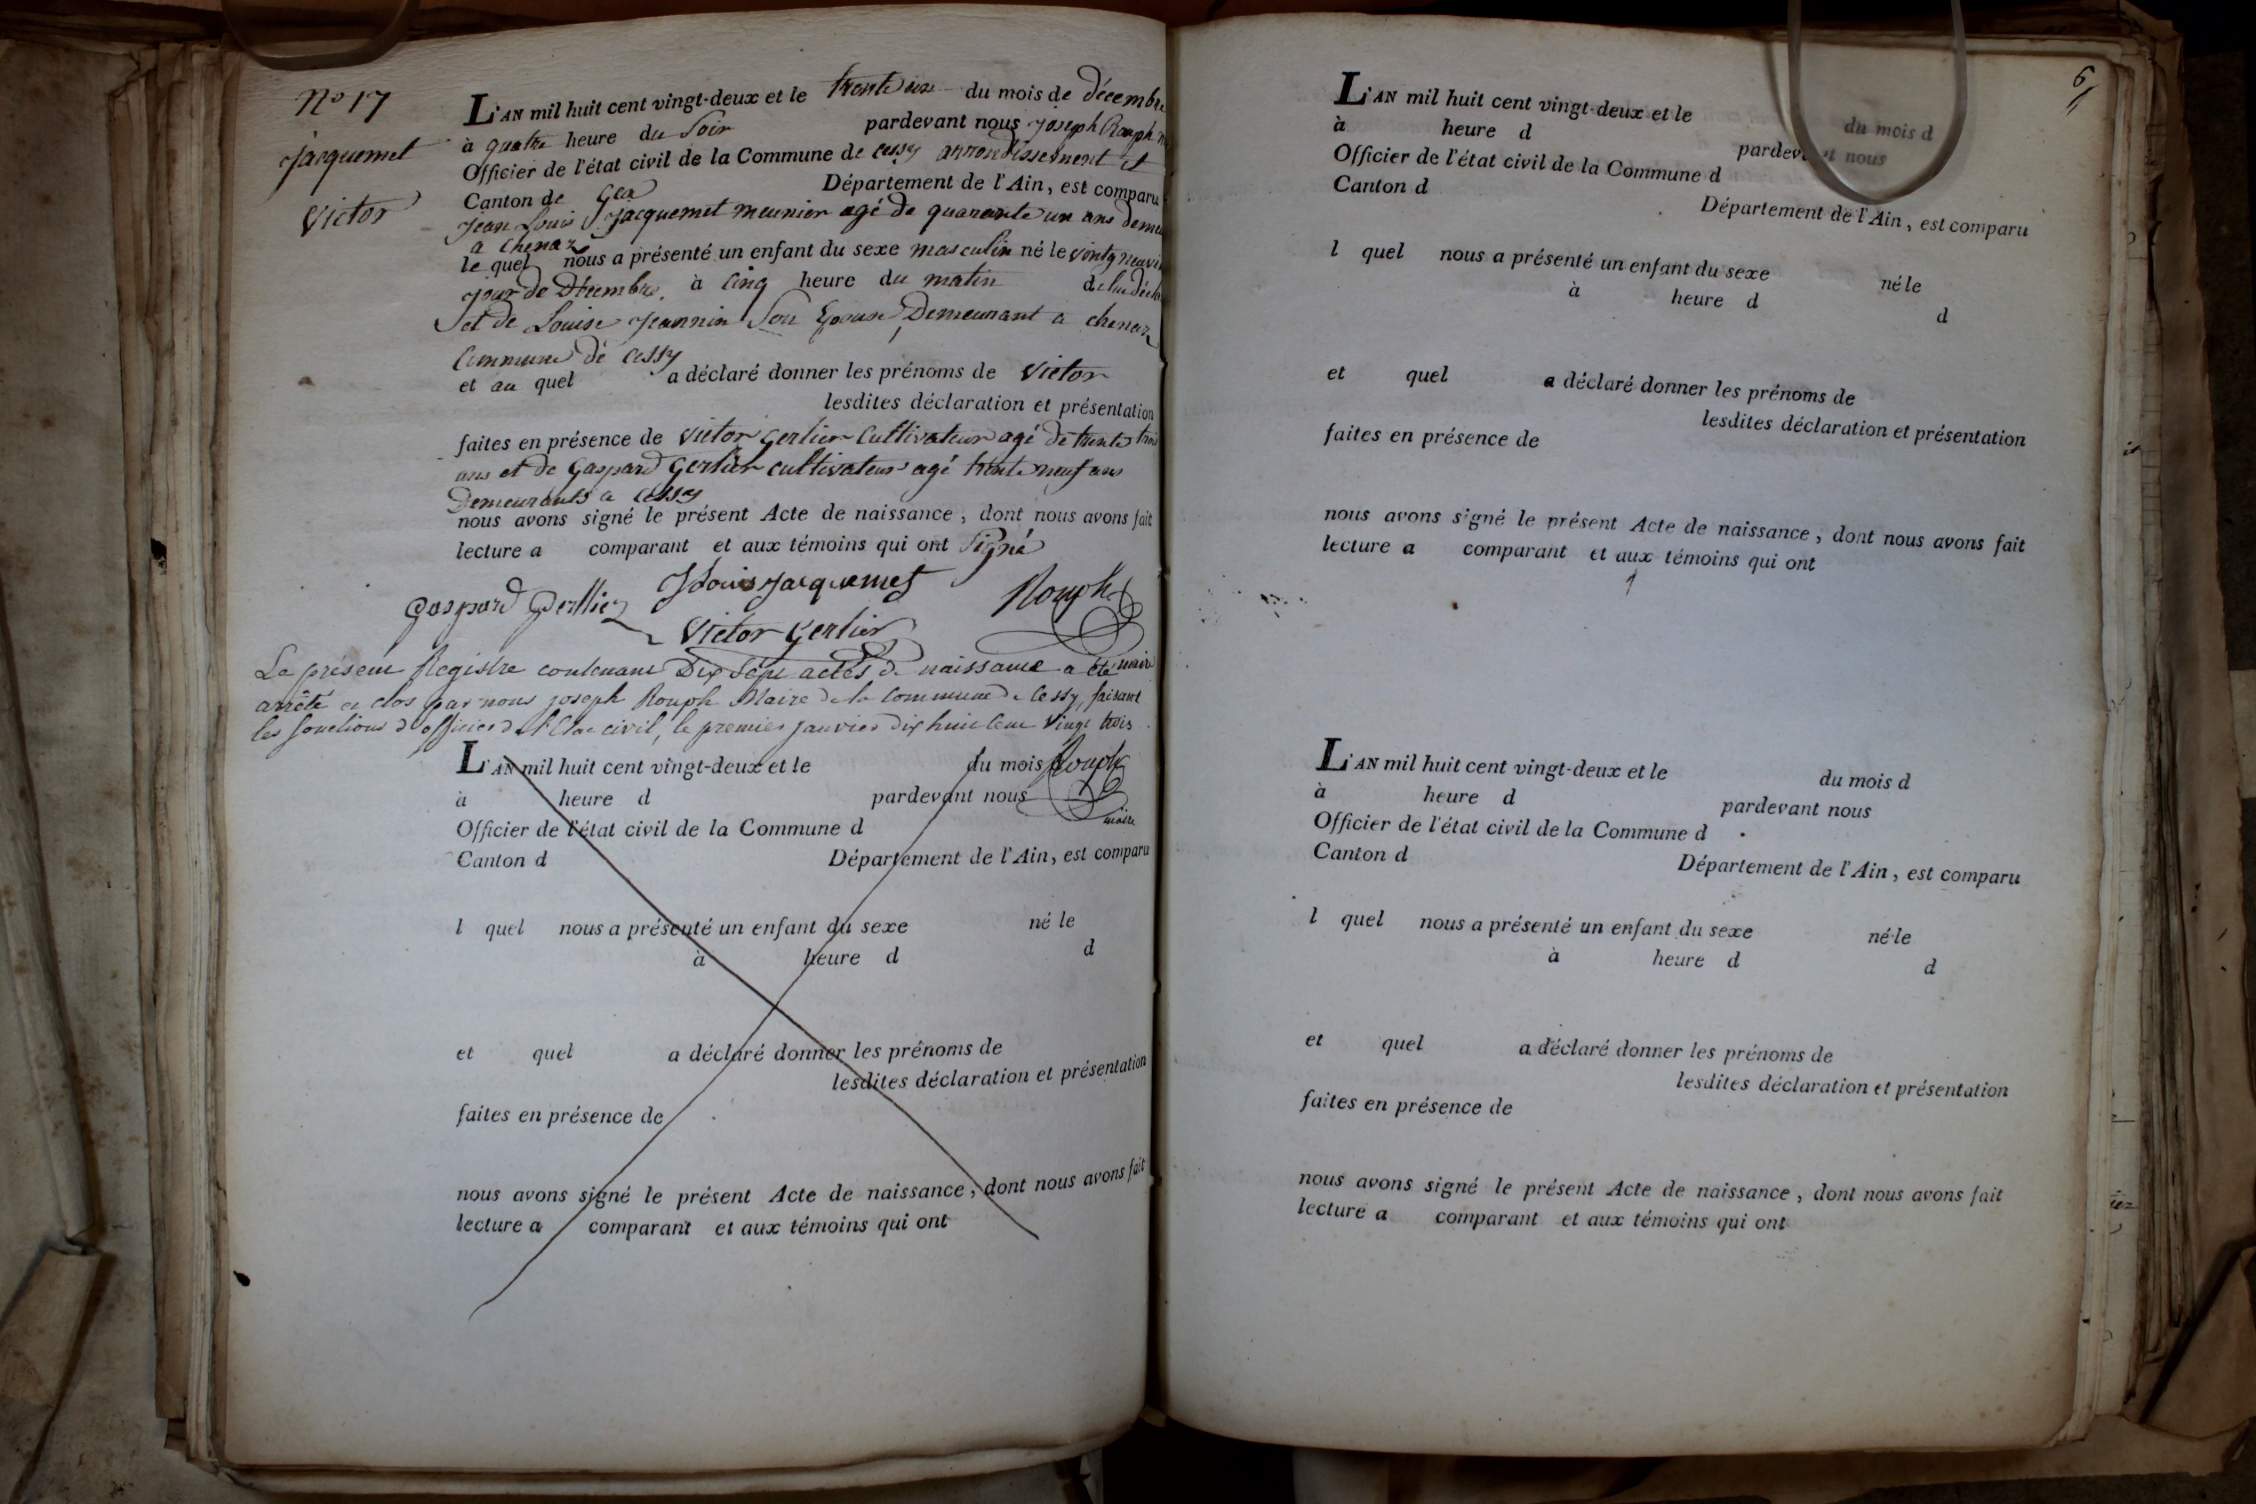 No 17
Jacquemet
Victor
L'AN mil huit cent vingt-deux et le trente du mois de décembre
à quatre heure du Soir pardevant nous joseph Rouph
Officier de l'état civil de la Commune de cessy arrondissement et
Canton de Gex Département de l'Ain, est comparu
Jean Louis Jacquemet meunier agé de quarante un ans
a chenaz
le quel nous a présenté un enfant du sexe masculin né le
jour de Décembre à Cinq heure du matin
et de Louise Jeannin Son Epouse Demeurant a chenaz
Commune de cessy
et au quel a déclaré donner les prénoms de victor
lesdites déclaration et présentation
faites en présence de victor gerlier Cultivateur agé de trente trois
ans et de gaspard gerlier cultivateur agé trente neuf ans
Demeurants a cessy
nous avons signé le présent Acte de naissance, dont nous avons fait
lecture a comparant et aux témoins qui ont Signé
gaspard gerllier JLouis jacquemet Rouph
victor gerlier
maire
Le présent Registre contenant Dix Sept actes de naissance a été
arrêté et clos par nous joseph Rouph Maire de la Commune de Cessy, faisant
les fonctions d'officier de l'Etat civil, le premier janvier dix huit Cent vingt trois
Rouph
maire
L'AN mil huit cent vingt-deux et le du mois d
à heure d pardevant nous
Officier de l'état civil de la Commune d
Canton d Département de l'Ain, est comparu
l quel nous a présenté un enfant du sexe né le
à heure d d
et quel a déclaré donner les prénoms de
lesdites déclaration et présentation
faites en présence de
nous avons signé le présent Acte de naissance, dont nous avons fait
lecture a comparant et aux témoins qui ont
6
L'AN mil huit cent vingt-deux et le du mois d
à heure d pardevant nous
Officier de l'état civil de la Commune d
Canton d Département de l'Ain, est comparu
l quel nous a présenté un enfant du sexe né le
à heure d d
et quel a déclaré donner les prénoms de
lesdites déclaration et présentation
faites en présence de
nous avons signé le présent Acte de naissance, dont nous avons fait
lecture a comparant et aux témoins qui ont
L'AN mil huit cent vingt-deux et le du mois d
à heure d pardevant nous
Officier de l'état civil de la Commune d
Canton d Département de l'Ain, est comparu
l quel nous a présenté un enfant du sexe né le
à heure d d
et quel a déclaré donner les prénoms de
lesdites déclaration et présentation
faites en présence de
nous avons signé le présent Acte de naissance, dont nous avons fait
lecture a comparant et aux témoins qui ont